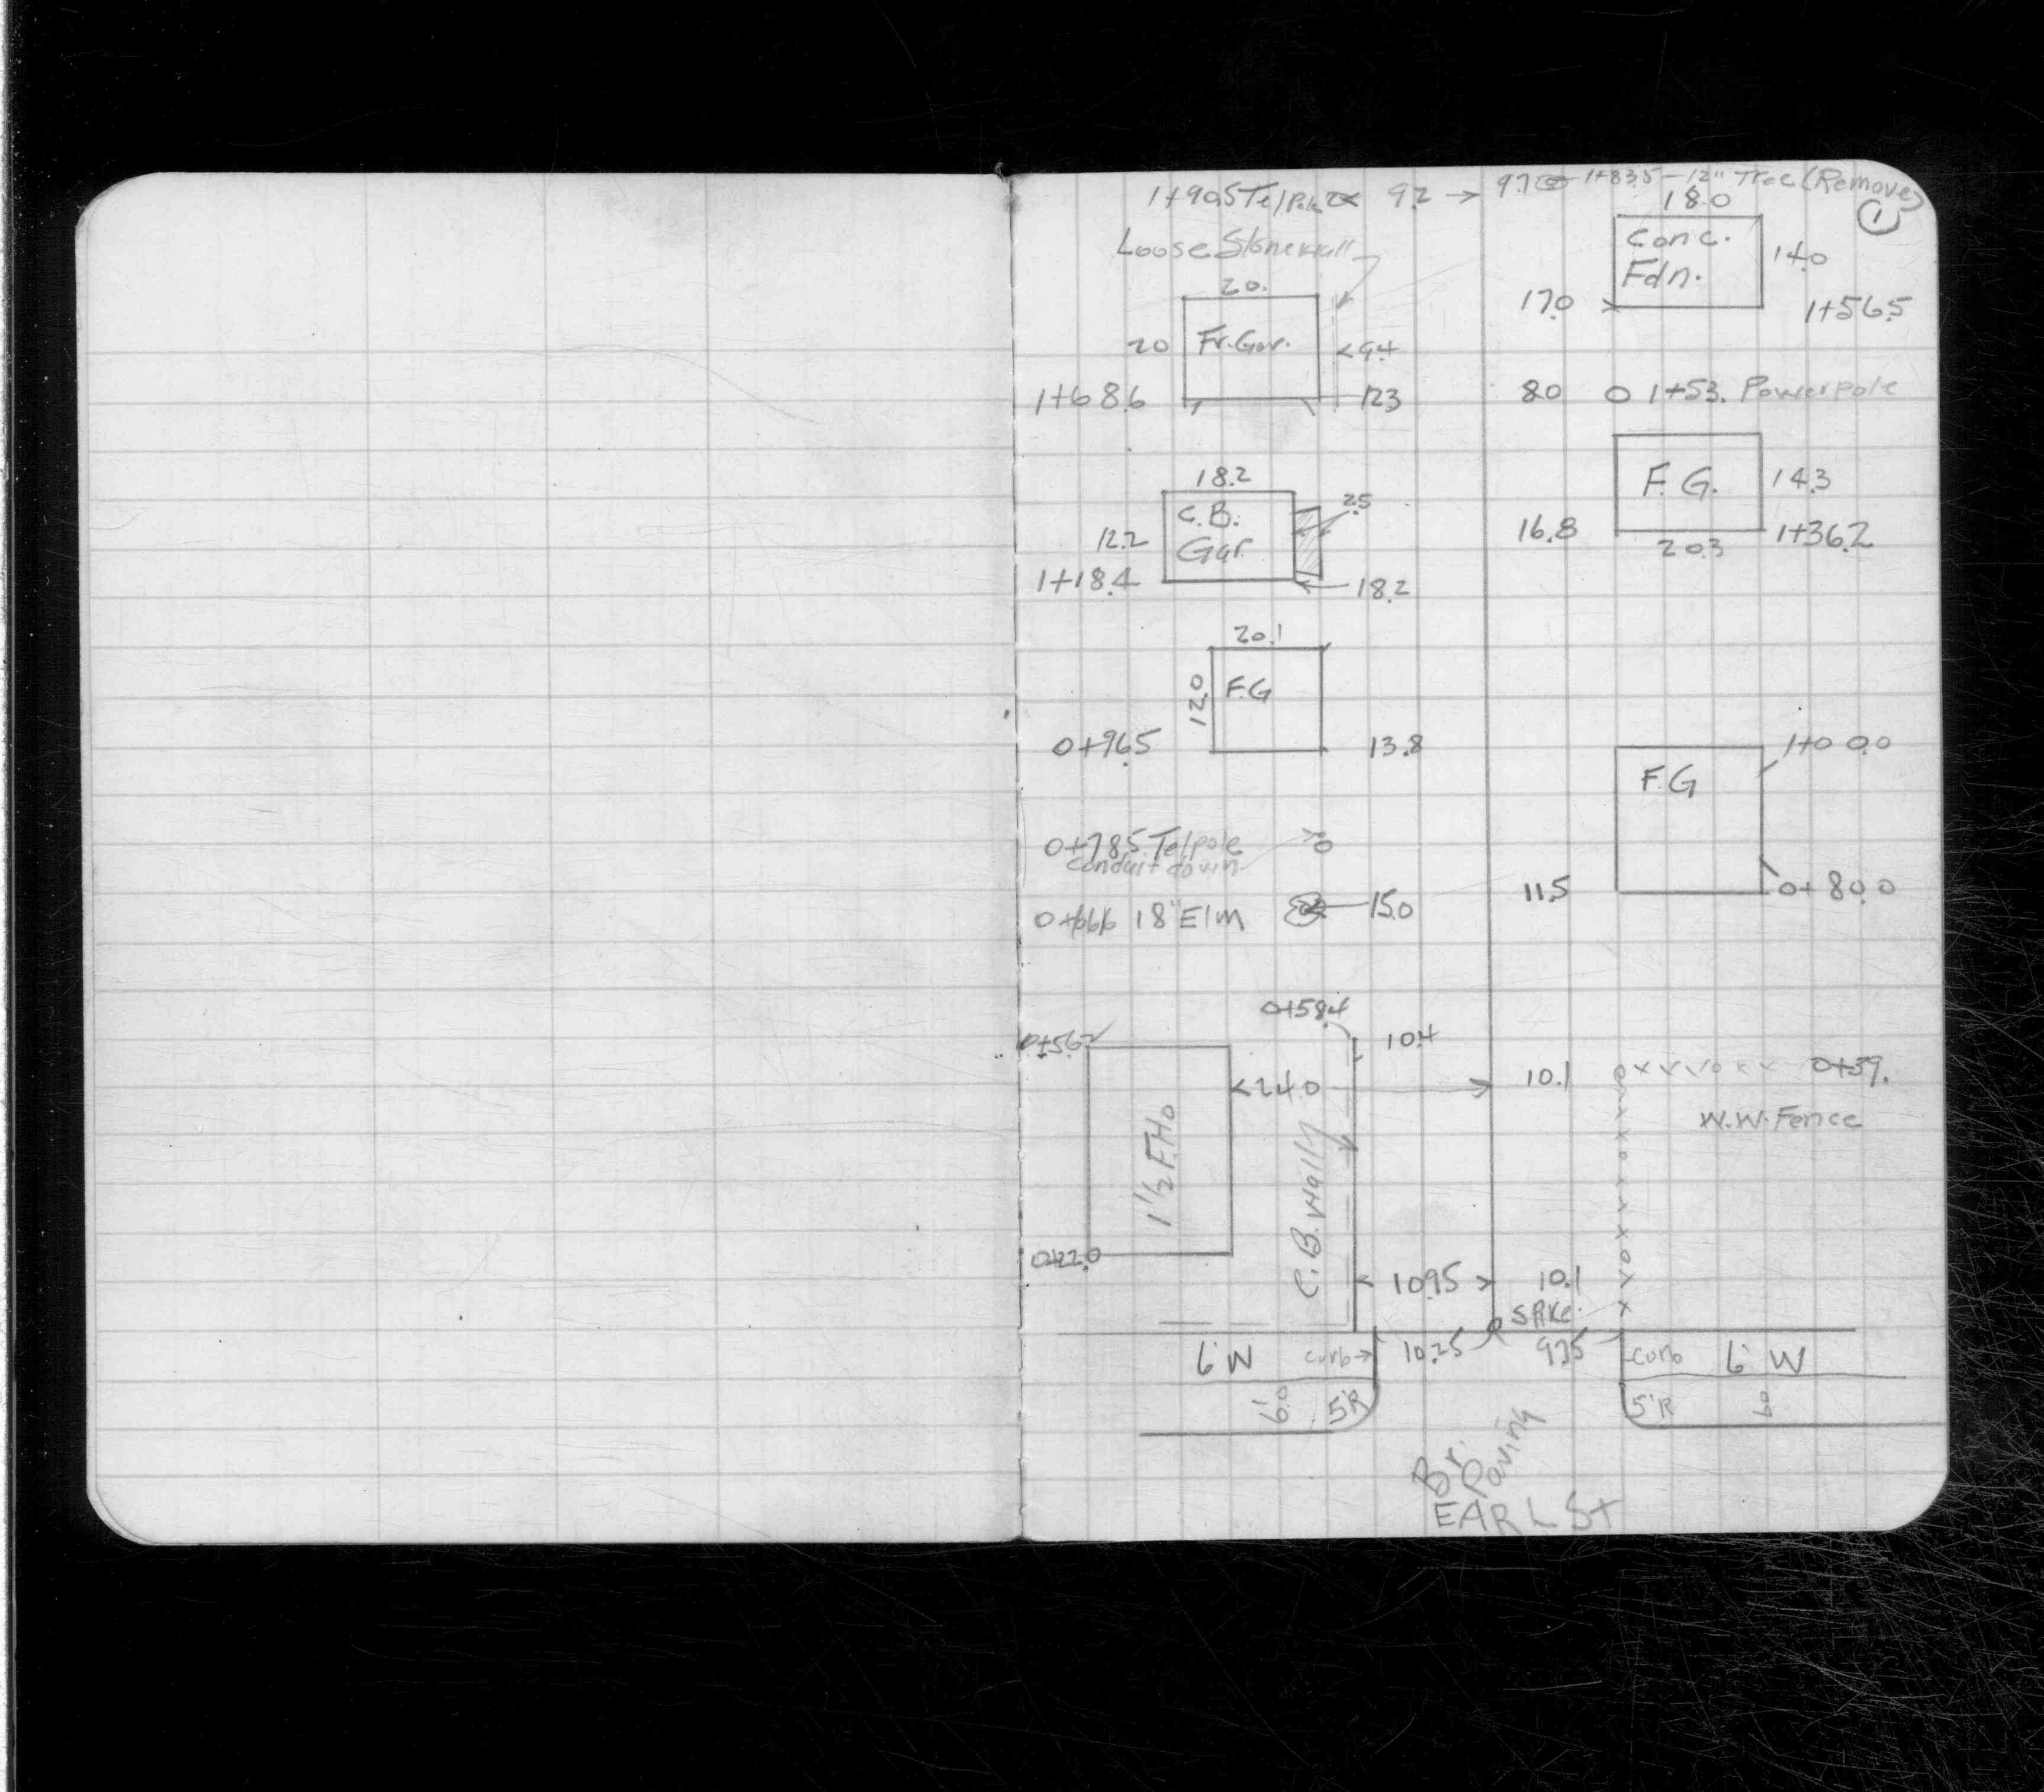 1+90.5 Tel Pole 9.2 → 9.7 1+83.5 - 12" Tree (Remove)
18.0
1
Loose Stonewall
Conc.
Fdn.
14.0
20.
17.0
1+56.5
20
Fr. Gar.
<9.4
1+68.6
12.3
8.0
1+53. Powerpole
18.2
2.5
F.G.
14.3
C.B.
Gar.
12.2
16.8
1+36.2
20.3
1+18.4
18.2
20.1
12.0
F.G
0+96.5
13.8
1+00.0
F.G
0+78.5 Tel pole
conduit down
11.5
0+80.0
0+66 18" Elm
15.0
0+58.4
0+56.2
10.4
<24.0
10.1
0+39.
W.W. Fence
1 1/2 F.Ho
C.B. Wall
0+22.0
10.95
10.1
SPike
6' W
curb→
10.25
9.75
curb
6' W
6.0
5'R
5'R
6.0
Br.
Paving
EARL St